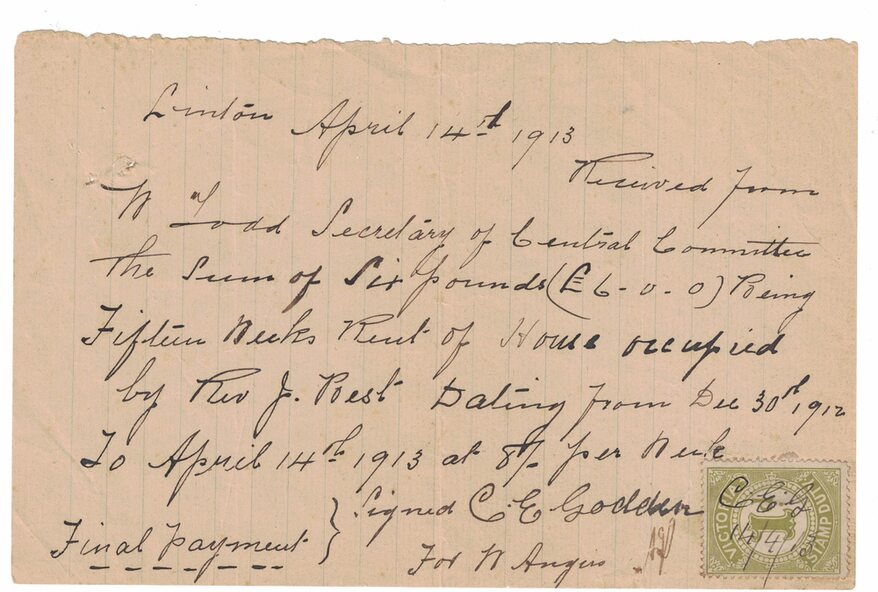 Linton April 14th 1913
Received from
W Todd Secretary of Central Committee
the Sum of Six pounds (£6-0-0) Being
Fifteen Weeks Rent of House occupied
by Rev J. Best Dating from Dec 30th 1912
To April 14th 1913 at 8/- per Week
Signed C. E. Godden
Final Payment
For W Angus
VICTORIA STAMP DUTY
C. E. G
14/4/13